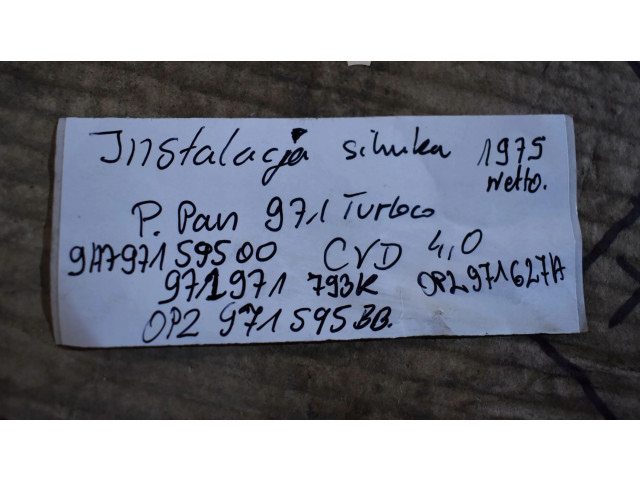 Instalacja silnika 1975
netto.
P. Pan 971 Turbo
9A797159500 CVD 4,0
971971 793K 0P2971627A
0P2 971595BB.